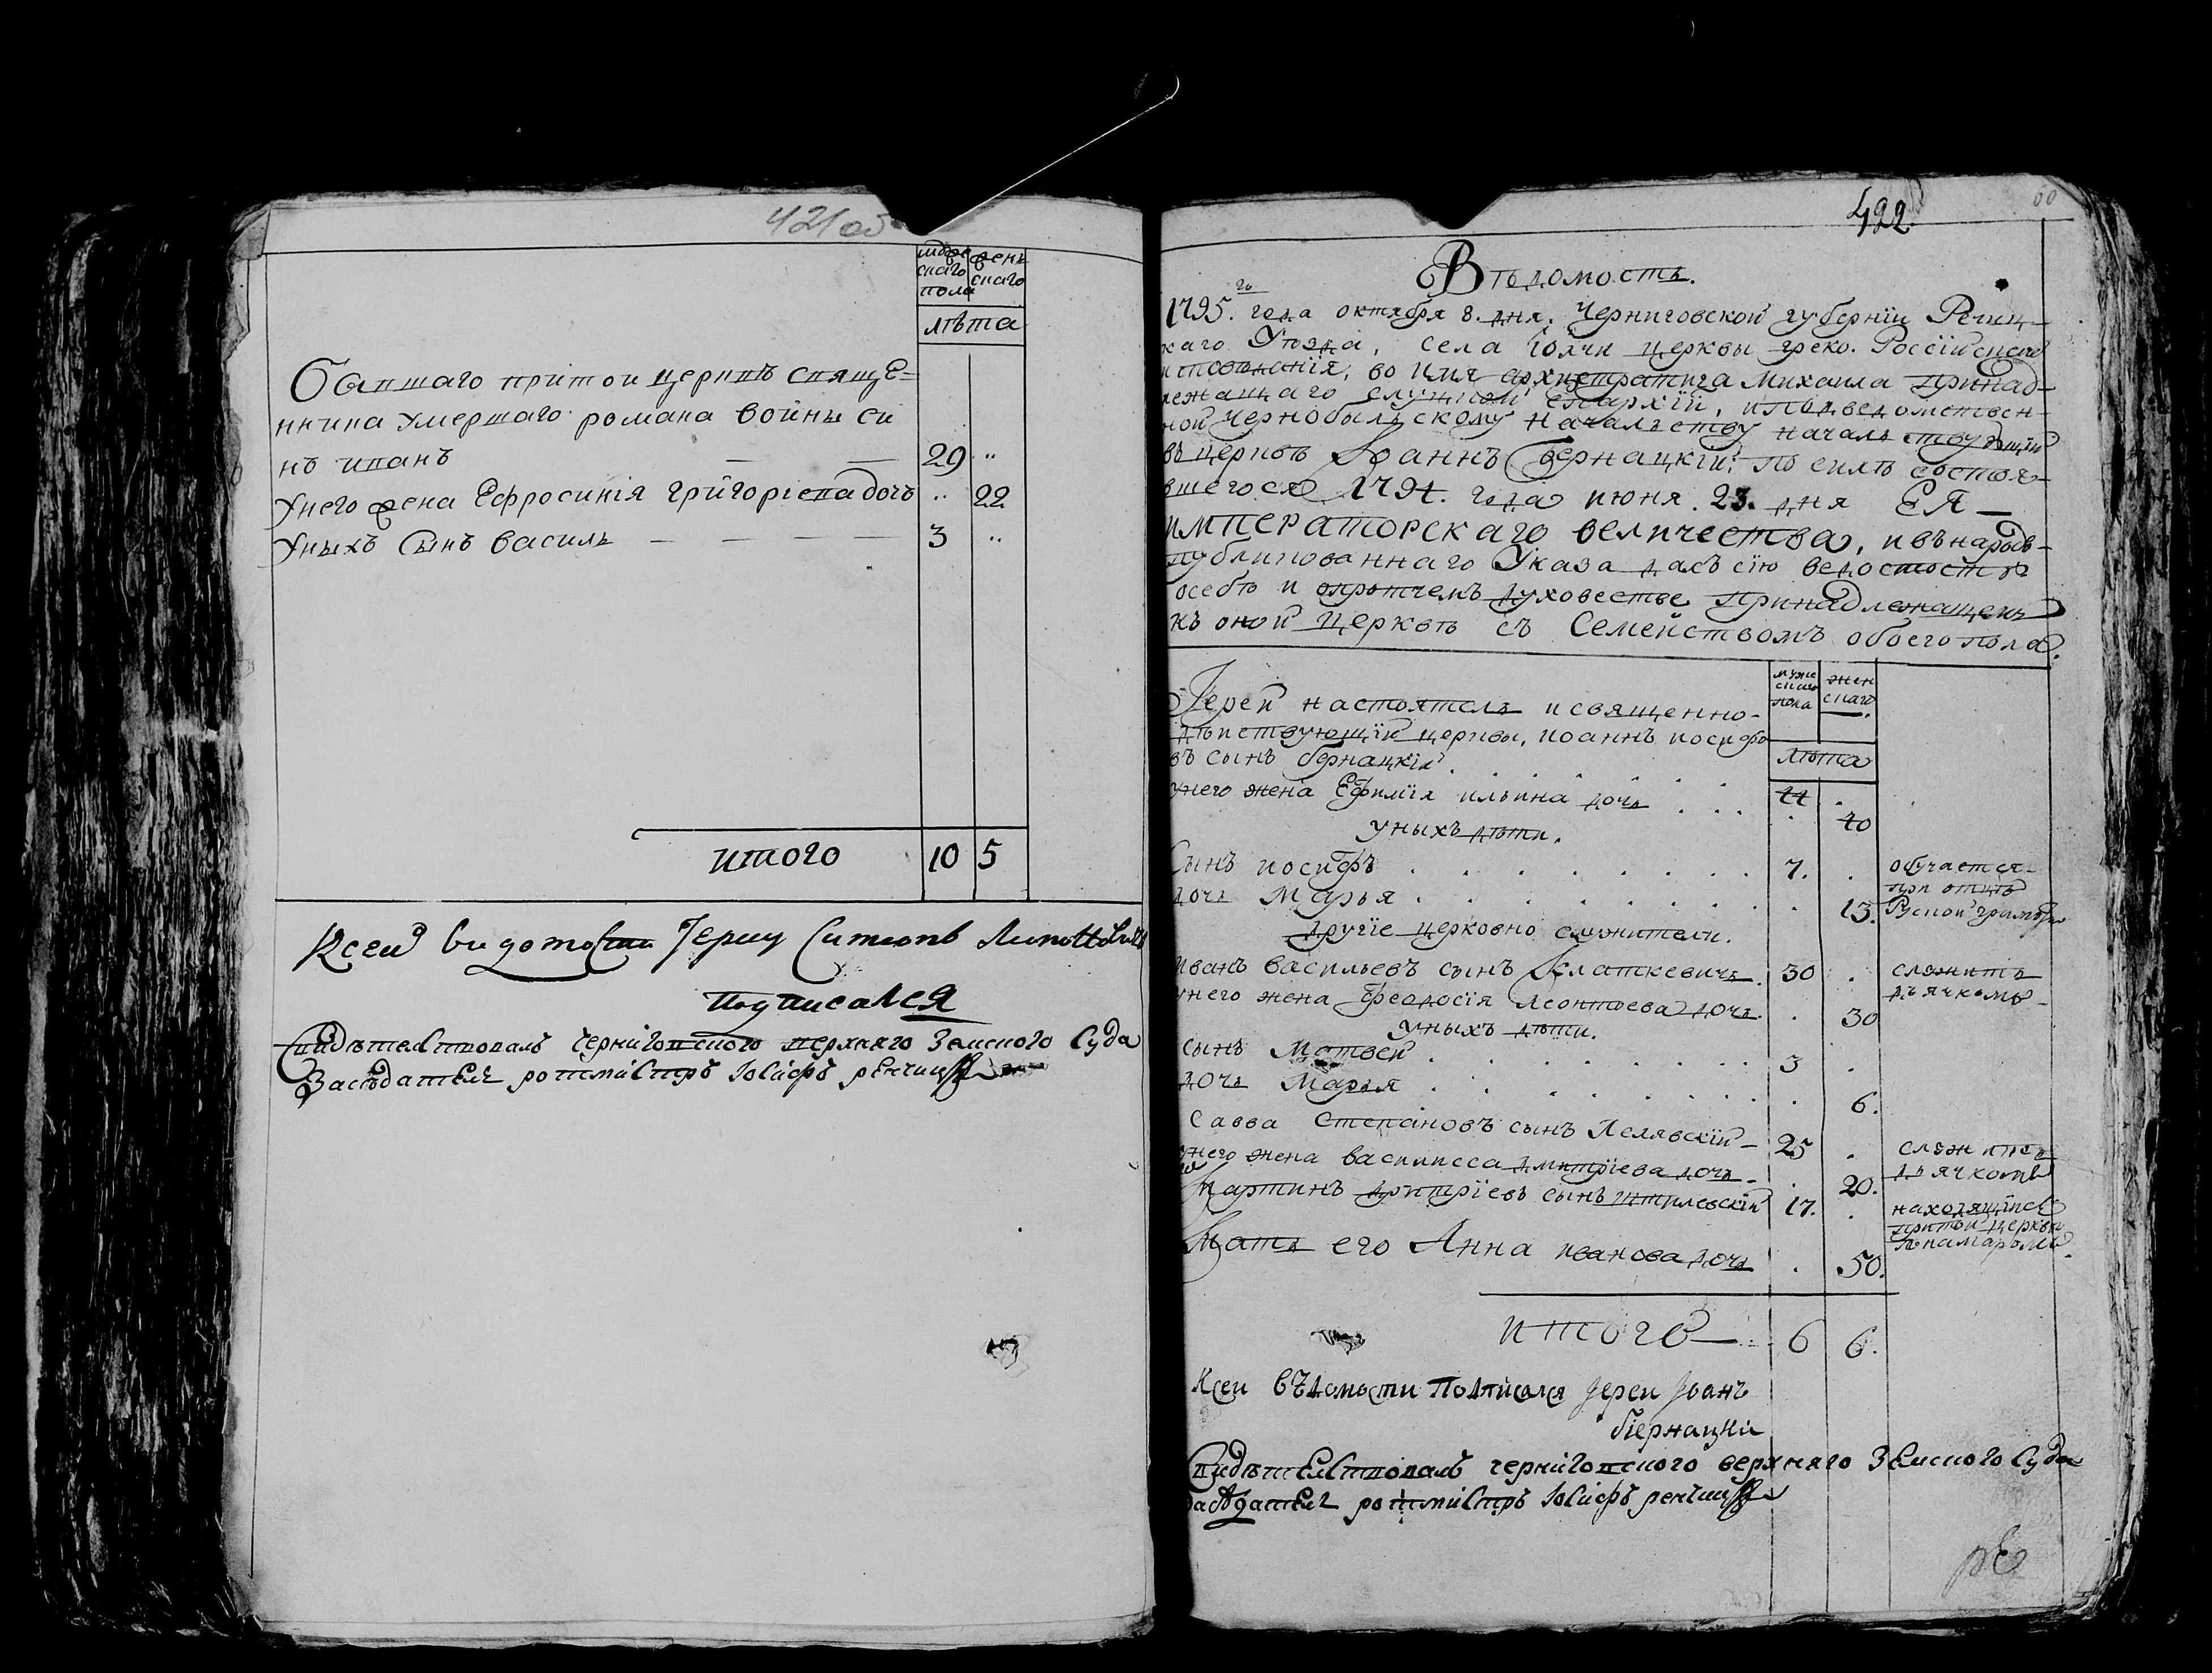 421 об
муже
скаго
пола
женъ
скаго
лѣта
Бывшаго притои церквѣ свяще=
нника умершаго романа войны си
нъ иванъ — — 29 "
Унего жена Ефросинія григоріева дочъ " 22
Уныхъ Сынъ василь — — — — 3 "
итого 10 5
Ксей видомости Іерей Симеонъ
подписался
Свидѣтелствовалъ черниговского верхняго Земского Суда
Засѣдателъ ротмистръ Іосифъ
422
60
Вѣдомость.
1795.го года октября 8. дня. Черниговской губерніи Речиц-
каго Уѣзда, села Іолчи церквы греко. Россійскаго
исповѣданія, во имя архистратига Михаила принад-
лежащаго слуцкой епархіи, иподведомствен-
ной Чернобыльскому начальству началствующій
въ церквѣ Іоаннъ Бернацкій: по силѣ состоя-
вшегося 1794. года июня. 23. дня ЕЯ —
императорскаго величества, ивънародъ-
публикованнаго Указа далъ сію ведомость
осебѣ и опротчемъ духовестве принадлежащемъ
къ оной церквѣ съ Семействомъ обоего пола.
муже
скаго
пола
жен
скаго
лѣта
Іерей настоятель исвященно-
дѣйствующій церквы, иоаннъ иосифо
въ сынъ бернацкій 44 .
унего жена Ефимія ильина дочь . 40
уныхъ дѣти.
Сынъ иосифъ 7. . обучается-
при отцѣ
Руской грамоти
дочь Марья . 13.
другіе церковно служители.
иванъ васильевъ сынъ Клаткевичь. 30 . служитъ
дьячкомъ-
унего жена Феодосія Леонтьева дочь. . 30
уныхъ дѣти.
сынъ Матвей 3 .
дочь Марья . 6.
Савва Степановъ сынъ Лелявскій- 25 . служитъ
дьячкомъ
унего жена василисса дмитріева дочь- . 20.
Мартинъ дмитріевъ сынъ 17. . находящійся
притой церкви
понамаромъ.
Мать его Анна иванова дочь . 50.
итого — 6 6.
Ксеи вѣдомости Подписался Іереи Іоанъ
бернацки
Свидѣтелствовалъ черниговского верхняго Земского Суда
засѣдателъ ротмистръ Іосифъ